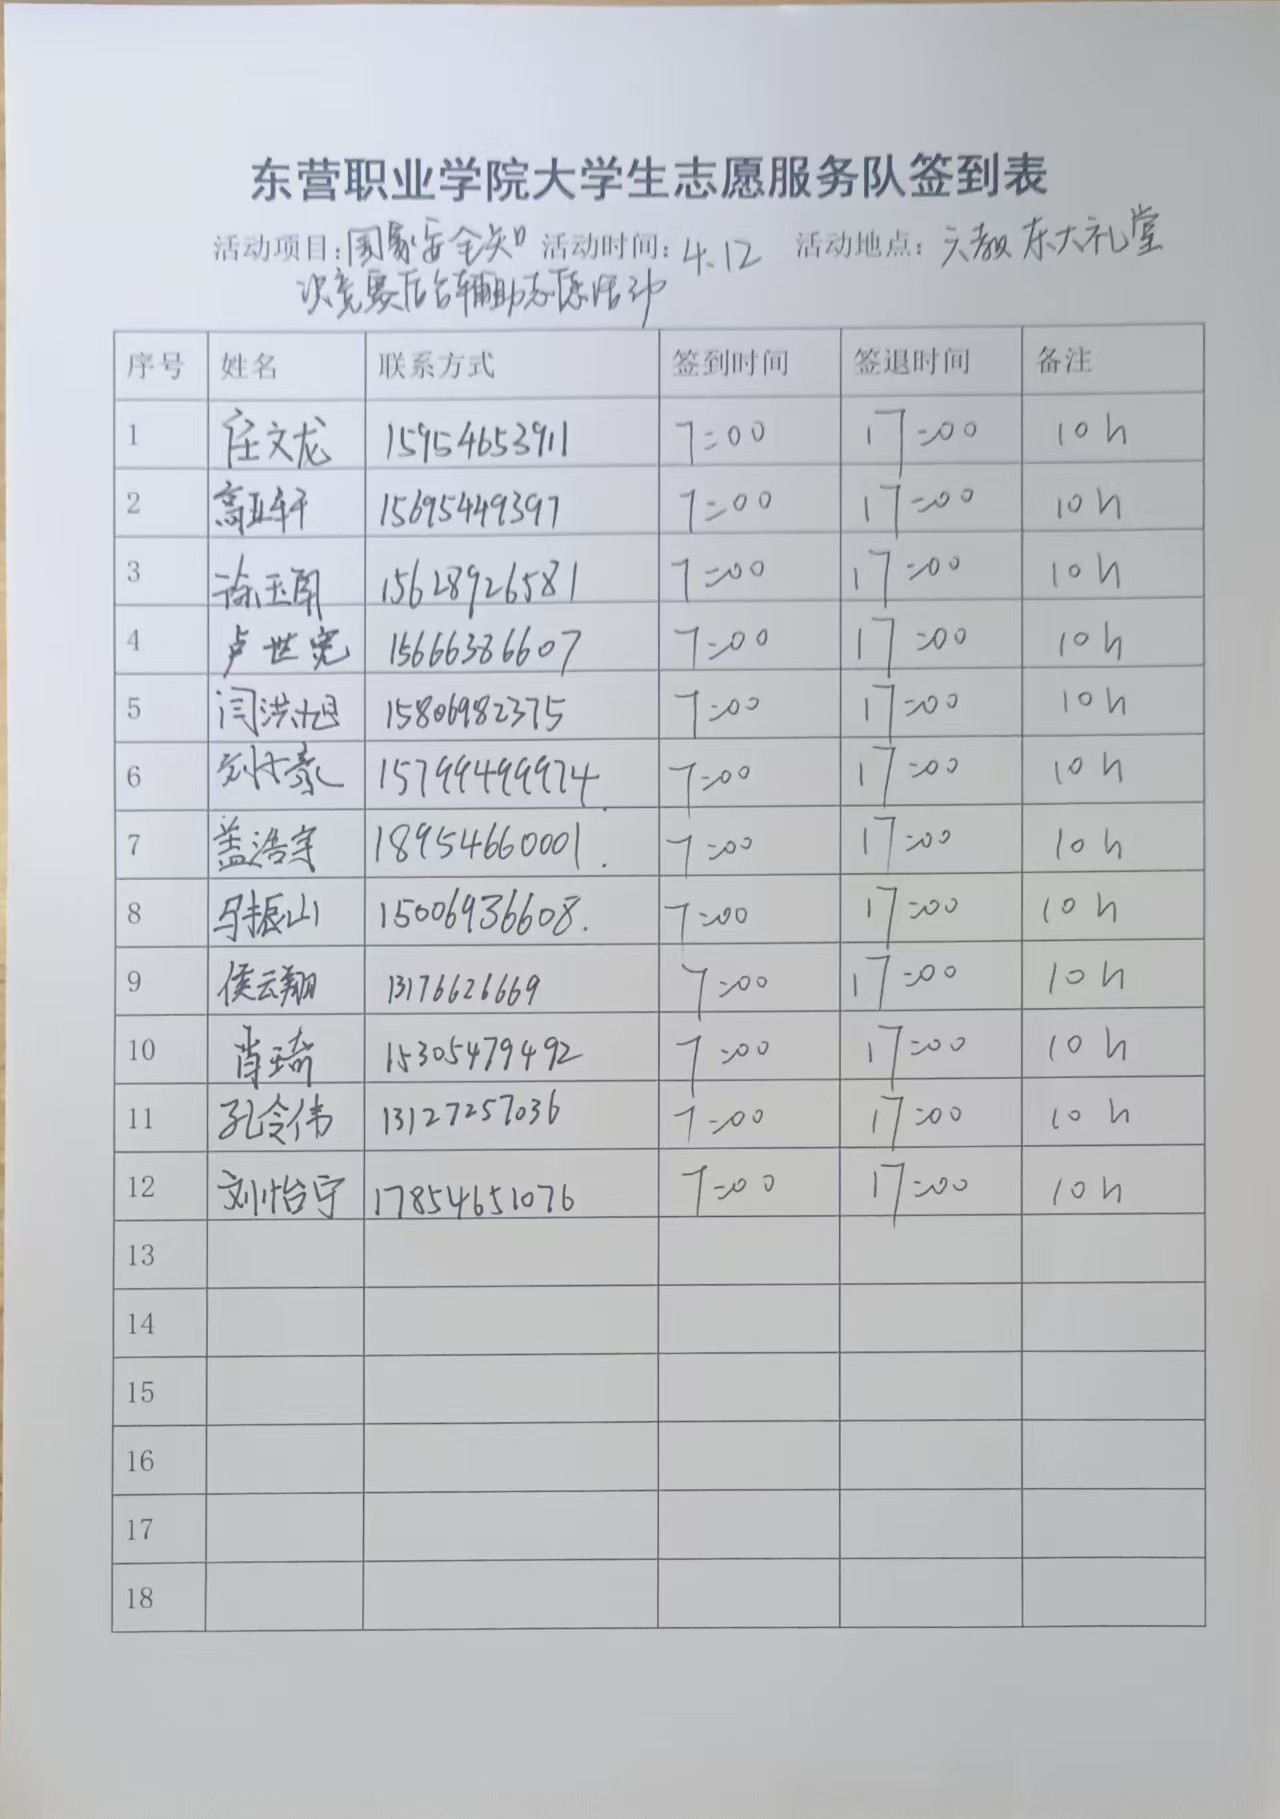 东营职业学院大学生志愿服务队签到表
活动项目:国家安全知 活动时间:4.12 活动地点:六教东大礼堂
识竞赛后台辅助志愿活动
序号 姓名 联系方式 签到时间 签退时间 备注
1 任文龙 15954653911 7:00 17:00 10h
2 高亚轩 15695449397 7:00 17:00 10h
3 徐玉 15628926581 7:00 17:00 10h
4 卢世宽 15666386607 7:00 17:00 10h
5 闫洪旭 15806982375 7:00 17:00 10h
6 刘 豪 15799499974. 7:00 17:00 10h
7 盖浩宇 18954660001. 7:00 17:00 10h
8 马振山 15006936608. 7:00 17:00 10h
9 侯云翔 13176626669 7:00 17:00 10h
10 肖琦 15305479492 7:00 17:00 10h
11 孔令伟 13127257036 7:00 17:00 10h
12 刘怡宁 17854651076 7:00 17:00 10h
13
14
15
16
17
18